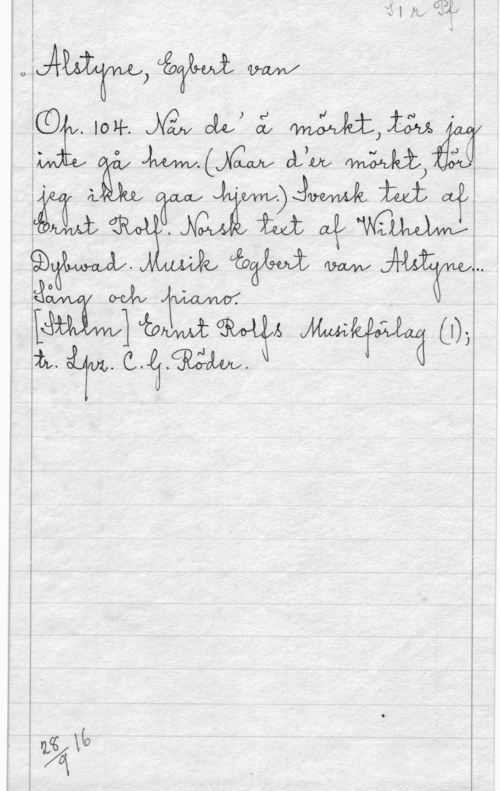 S1 r Pf
Alstyne, Egbert van
Op. 104. När de' ä mörkt, törs jag
inte gå hem. (Naar d'er mörkt, tör
jeg ikke gaa hjem.) Svensk text af
Ernst Rolf. Norsk text af Wilhelm
Dybwad. Musik Egbert van Alstyne...
Sång och piano.
[Sthlm] Ernst Rolfs Musikförlag (1);
tr. Lpz. C. G. Röder.
28/9 16